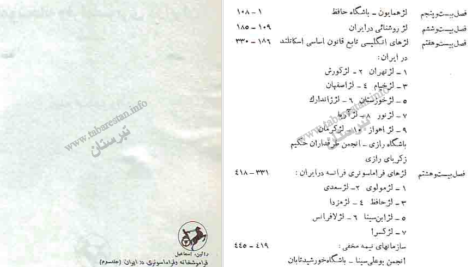 فصل بیست و پنجم لژ همایون - باشگاه حافظ ۱ - ۱۰۸
فصل بیست و ششم لژ روشنائی در ایران ۱۰۹ - ۱۸۵
فصل بیست و هفتم لژهای انگلیسی تابع قانون اساسی اسکاتلند ۱۸۶ - ۳۳۰
در ایران :
۱ - لژ تهران ۲ - لژ کورش
۳ - لژ خیام ۴ - لژ اصفهان
۵ - لژ خوزستان ۶ - لژ ژاندارک
۷ - لژ نور ۸ - لژ آریا
۹ - لژ اهواز ۱۰ - لژ کرمان
باشگاه رازی - انجمن طرفداران حکیم
زکریای رازی
فصل بیست و هشتم لژهای فراماسونری فرانسه در ایران : ۳۳۱ - ۴۱۸
۱ - لژ مولوی ۲ - لژ سعدی
۳ - لژ حافظ ۴ - لژ مزدا
۵ - لژ ابن سینا ۶ - لژ لافرانس
۷ - لژ کسرا
سازمانهای نیمه مخفی : ۴۱۹ - ۴۴۵
انجمن بوعلی سینا - باشگاه خورشید تابان
رائین، اسماعیل
فراموشخانه و فراماسونری در ایران (جلد سوم)
www.tabarestan.info
تبرستان
www.tabarestan.info
تبرستان